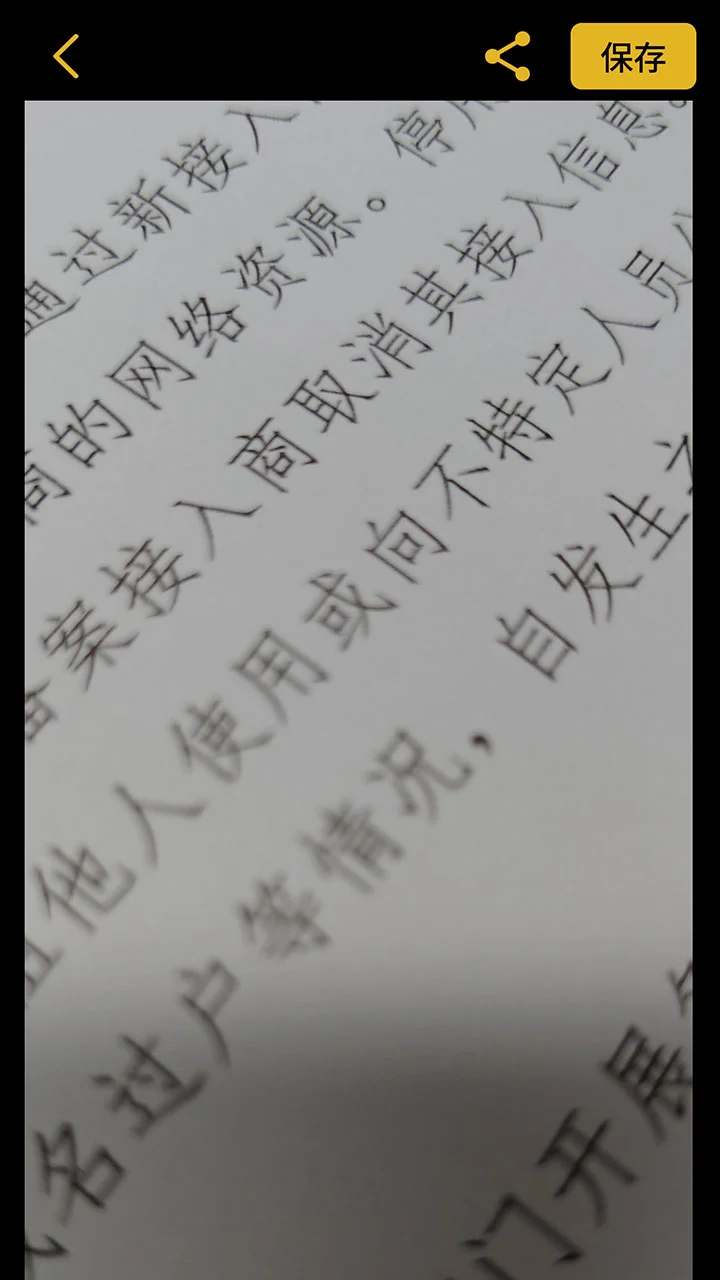 保存
通过新接入
商的网络资源。停用
备案接入商取消其接入信息。
他人使用或向不特定人员
域名过户等情况，自发生之
门开展